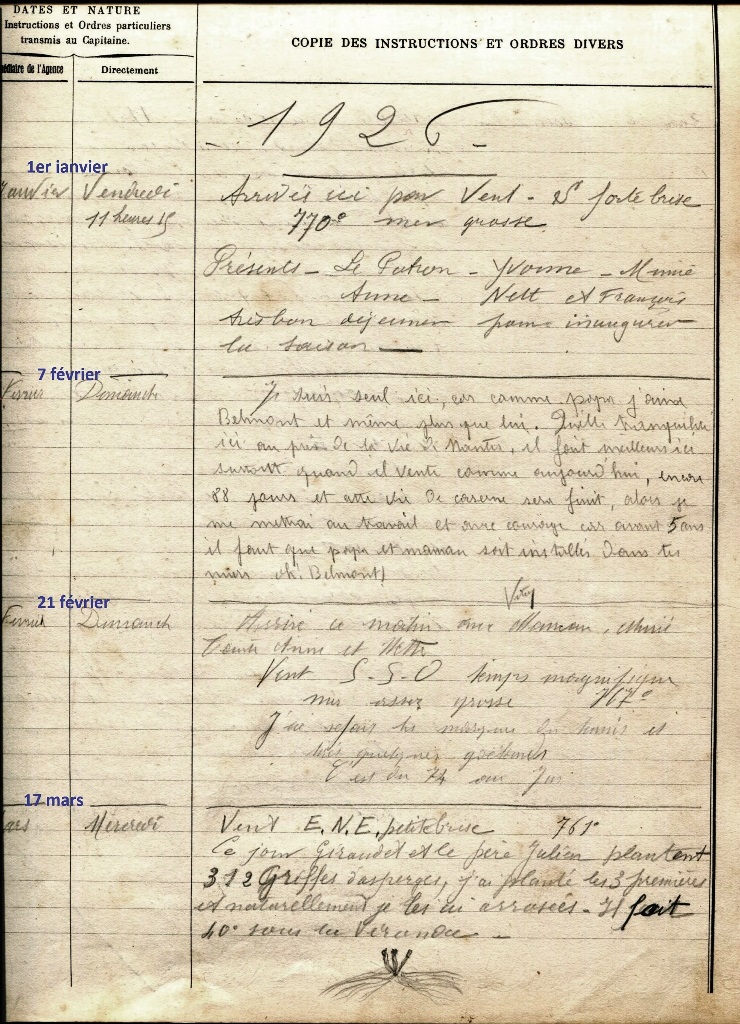 DATES ET NATURE
Instructions et Ordres particuliers
transmis au Capitaine.
médiaire de l'Agence
Directement
COPIE DES INSTRUCTIONS ET ORDRES DIVERS
- 1926 -
1er janvier
Janvier
Vendredi
11 heures 15
Arrivés ici par Vent - S forte brise
770° mer grosse
Présents - Le Patron - Yvonne - Mimie
Anne - Nett et François
très bon déjeuner pour inaugurer
la saison -
7 février
Fevrier
Dimanche
Je suis seul ici, car comme papa j'aime
Belmont et même plus que lui. Quelle tranquilité
ici au près de la vie de Nantes, il fait meilleurs ici
surtout quand il vente comme aujourd'hui, encore
88 jours et cette vie de caserne sera finit, alors je
me mettrai au travail et avec courage car avant 5 ans
il faut que papa et maman soit installés dans tes
murs oh! Belmont!
21 février
Fevrier
Dimanche
Arrivé ce matin avec Maman, Mimie
Tante Anne et Nette
Vent S-S-O temps magnifique
mer assez grosse 767°
J'ai refais les marques du tennis et
quelques goélands
C'est du 74 au Jus
17 mars
ars
Mercredi
Vent E.N.E. petite brise 761°
Ce jour Giraudet et le père Julien plantent
312 Griffes d'asperges, j'ai planté les 3 premières
et naturellement je les ai arrosées - Il fait
40° sous la Veranda -